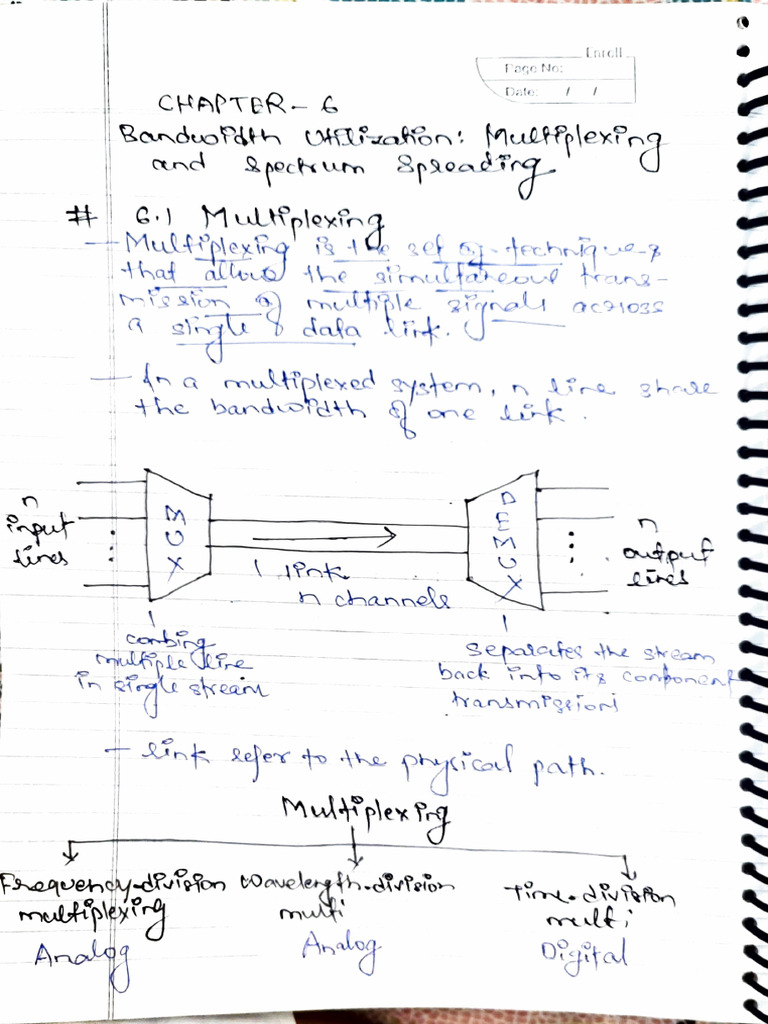 Enroll
Page No:
Date: / /
CHAPTER - 6
Bandwidth Utilization: Multiplexing
and Spectrum Spreading
# 6.1 Multiplexing
- Multiplexing is the set of techniques
that allows the simultaneous trans-
mission of multiple signals across
a single data link.
- In a multiplexed system, n line share
the bandwidth of one link.
n
input
lines
MUX
1 link
n channels
DEMUX
n
output
lines
combing
multiple line
in single stream
separates the stream
back into its component
transmission
- link refer to the physical path.
Multiplexing
Frequency-division
multiplexing
Analog
Wavelength-division
multi
Analog
Time-division
multi
Digital